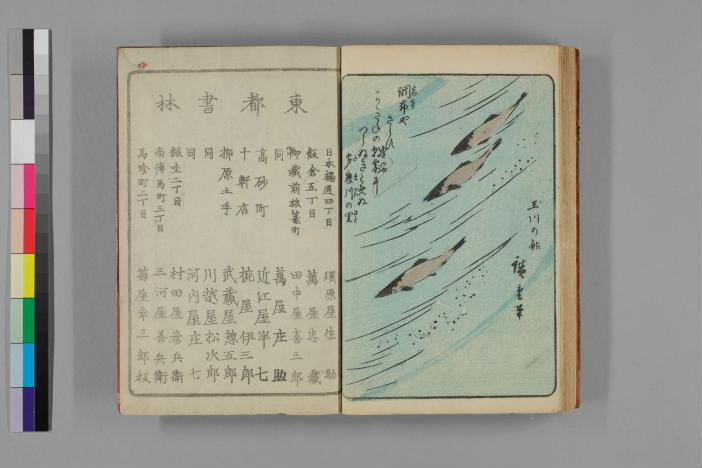 玉川の鮎
廣重筆
調布や
東都書林
日本橋通四丁目
須原屋佐助
飯倉五丁目
萬屋忠蔵
御成前旅篭町
田中屋喜三郎
同
萬屋庄助
高砂町
近江屋半七
十軒店
椀屋伊三郎
柳原土手
武蔵屋惣五郎
同
川越屋松次郎
同
河内屋庄七
銀坐二丁目
村田屋彦兵衛
南傳馬町三丁目
三河屋善兵衛
馬喰町二丁目
菊屋幸三郎板